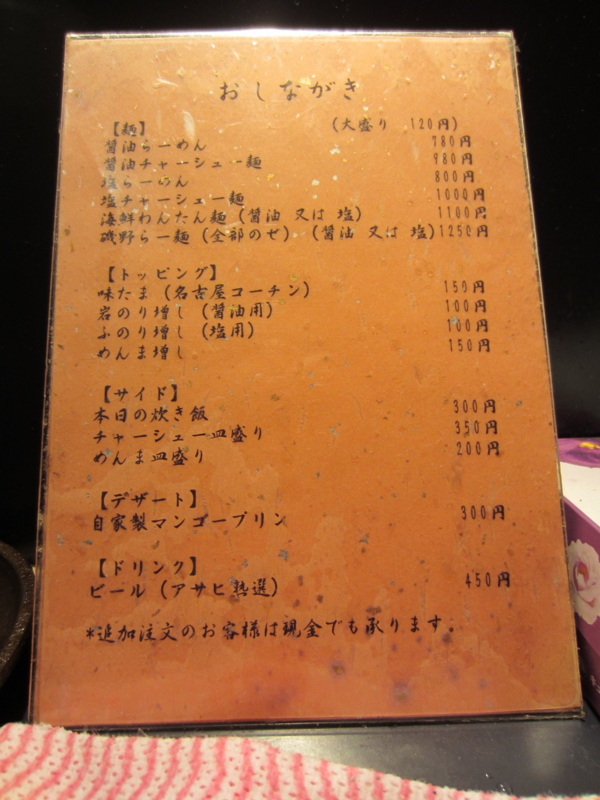 おしながき
【麺】 (大盛り 120円)
醤油らーめん 780円
醤油チャーシュー麺 980円
塩らーめん 800円
塩チャーシュー麺 1000円
海鮮わんたん麺 (醤油 又は 塩) 1100円
磯野らー麺 (全部のせ) (醤油 又は 塩) 1250円
【トッピング】
味たま (名古屋コーチン) 150円
岩のり増し (醤油用) 100円
ふのり増し (塩用) 100円
めんま増し 150円
【サイド】
本日の炊き飯 300円
チャーシュー皿盛り 350円
めんま皿盛り 200円
【デザート】
自家製マンゴープリン 300円
【ドリンク】
ビール (アサヒ熟選) 450円
*追加注文のお客様は現金でも承ります。